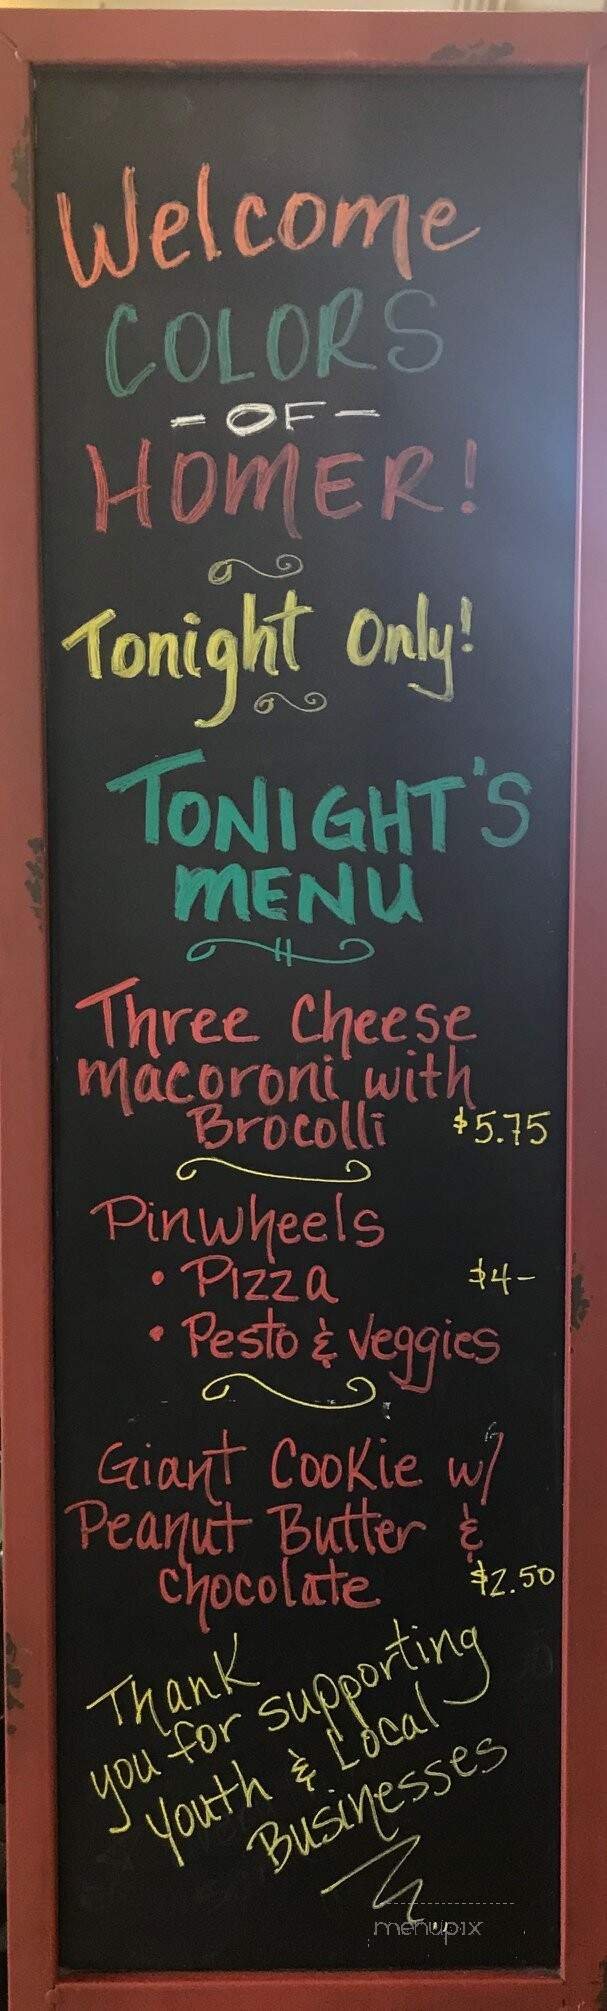 Welcome
COLORS
-OF-
HOMER!
Tonight Only!
TONIGHT'S
MENU
Three Cheese
macoroni with
Brocolli $5.75
Pinwheels
• Pizza $4-
• Pesto & Veggies
Giant Cookie w/
Peanut Butter &
chocolate $2.50
Thank
you for supporting
Youth & Local
Businesses
menupix